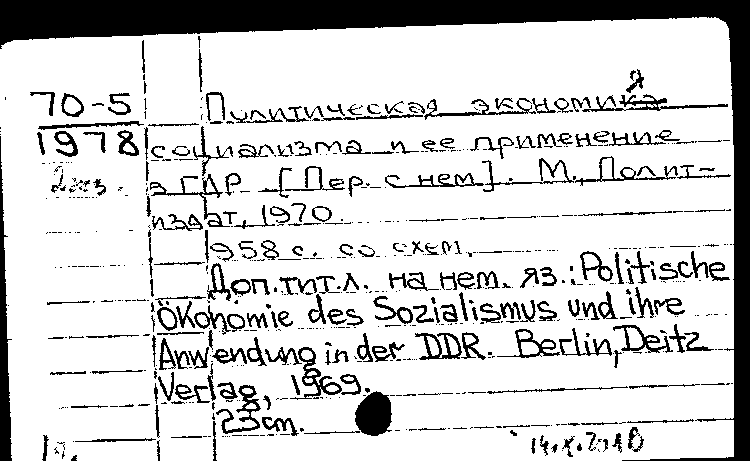 70-5
1978
2 экз.
Политическая экономия
социализма и ее применение
в ГДР. [Пер. с нем]. М., Полит-
издат, 1970.
958 с. со схем.
Доп. тит. л. на нем. яз.: Politische
Ökonomie des Sozialismus und ihre
Anwendung in der DDR. Berlin, Deitz
Verlag, 1969.
23 cm.
14.X.2010